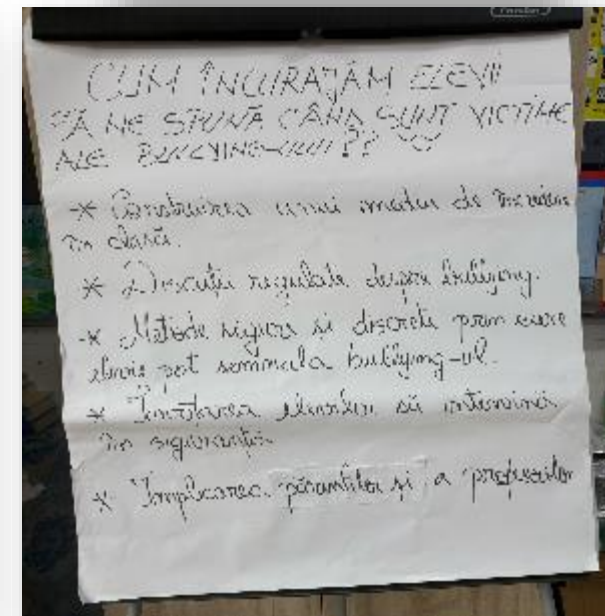 CUM ÎNCURAJĂM ELEVII
SĂ NE SPUNĂ CÂND SUNT VICTIME
ALE BULLYING-ULUI??
* Construirea unui mediu de încredere
în clasă.
* Discuții regulate despre bullying.
* Metode sigure si discrete prin care
elevii pot semnala bullying-ul.
* Învățarea elevilor să intervină
în siguranță.
* Implicarea părintilor și a profesorilor